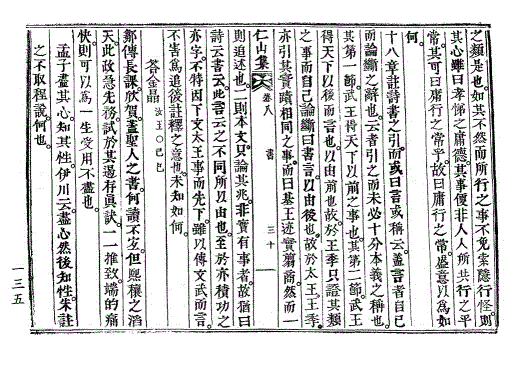 之類是也如其不然而所行之事不免索隱行怪則
其心雖曰孝悌之庸德其事便非人人所共行之平
常其可曰庸行之常乎故曰庸行之常盛意以爲如
何
十八章註詩書之引而或曰言或稱云蓋言者自己
而論斷之辭也云者引之而未必十分本義之稱也
其第一節武王得天下以前之事也其第二節武王
得天下以後而言也由前也故於王季只證其類
之事而自己論斷曰書言以由後也故於太王王季
亦引其實蹟相同之事而曰基王迹實翦商然而一
仁山集 卷八 書 三十
則追述也一則本文只論其兆非實有事者故猶曰
詩云書云此言云之不同所以由也至於亦積功之
亦字不特因下文太王事而先下雖以傳文武而言
不害爲追後註釋之意也未知如何
答金晶 汝王○己巳
鄒傳長課欣賀蓋聖人之書何讀不宜但熙穰之滔
天此故急先務試於其遏存眞訣一一推致端的痛
快則可以爲一生受用不盡也
孟子盡其心知其性伊川云盡心然後知性朱註
之不取程說何也
一三五